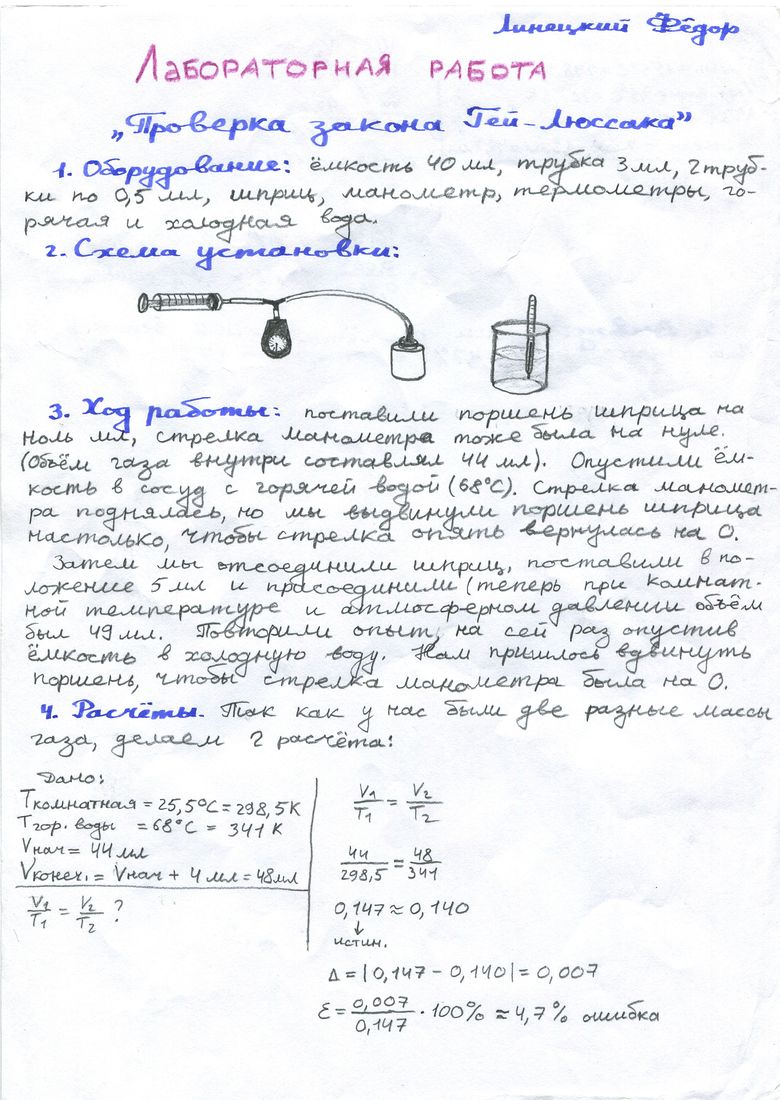 Линецкий Фёдор
Лабораторная работа
„Проверка закона Гей-Люссака”
1. Оборудование: ёмкость 40 мл, трубка 3 мл, 2 труб-
ки по 0,5 мл, шприц, манометр, термометры, го-
рячая и холодная вода.
2. Схема установки:
3. Ход работы: поставили поршень шприца на
ноль мл, стрелка манометра тоже была на нуле.
(Объём газа внутри составлял 44 мл). Опустили ём-
кость в сосуд с горячей водой (68°C). Стрелка маномет-
ра поднялась, но мы выдвинули поршень шприца
настолько, чтобы стрелка опять вернулась на 0.
Затем мы отсоединили шприц, поставили в по-
ложение 5 мл и присоединили (теперь при комнат-
ной температуре и атмосферном давлении объём
был 49 мл. Повторили опыт, на сей раз опустив
ёмкость в холодную воду. Нам пришлось вдвинуть
поршень, чтобы стрелка манометра была на 0.
4. Расчёты. Так как у нас были две разные массы
газа, делаем 2 расчёта:
Дано:
Tкомнатная = 25,5°C = 298,5 K
Tгор. воды = 68°C = 341 K
Vнач = 44 мл
Vконеч. = Vнач + 4 мл = 48 мл
V1/T1 = V2/T2 ?
V1/T1 = V2/T2
44/298,5 = 48/341
0,147 ≈ 0,140
↓
истин.
Δ = |0,147 - 0,140| = 0,007
ε = 0,007/0,147 · 100% ≈ 4,7% ошибка